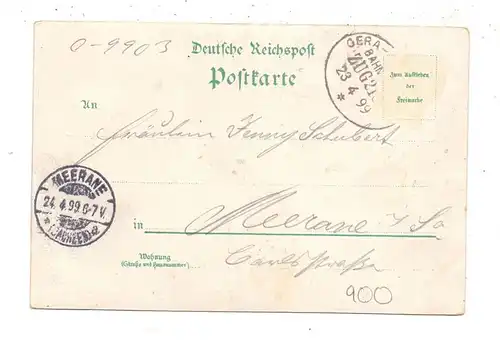 0-9903
Deutsche Reichspost
Postkarte
GERA-
BAHN
ZUG 21
23 4 99
*
Zum Aufkleben
der
Freimarke
An
Fräulein Jenny Schubert
MEERANE
24. 4. 99. 6-7 V.
* (SACHSEN)
in
Meerane i/Sa
Wohnung
(Straße und Hausnummer)
Carlsstraße
900